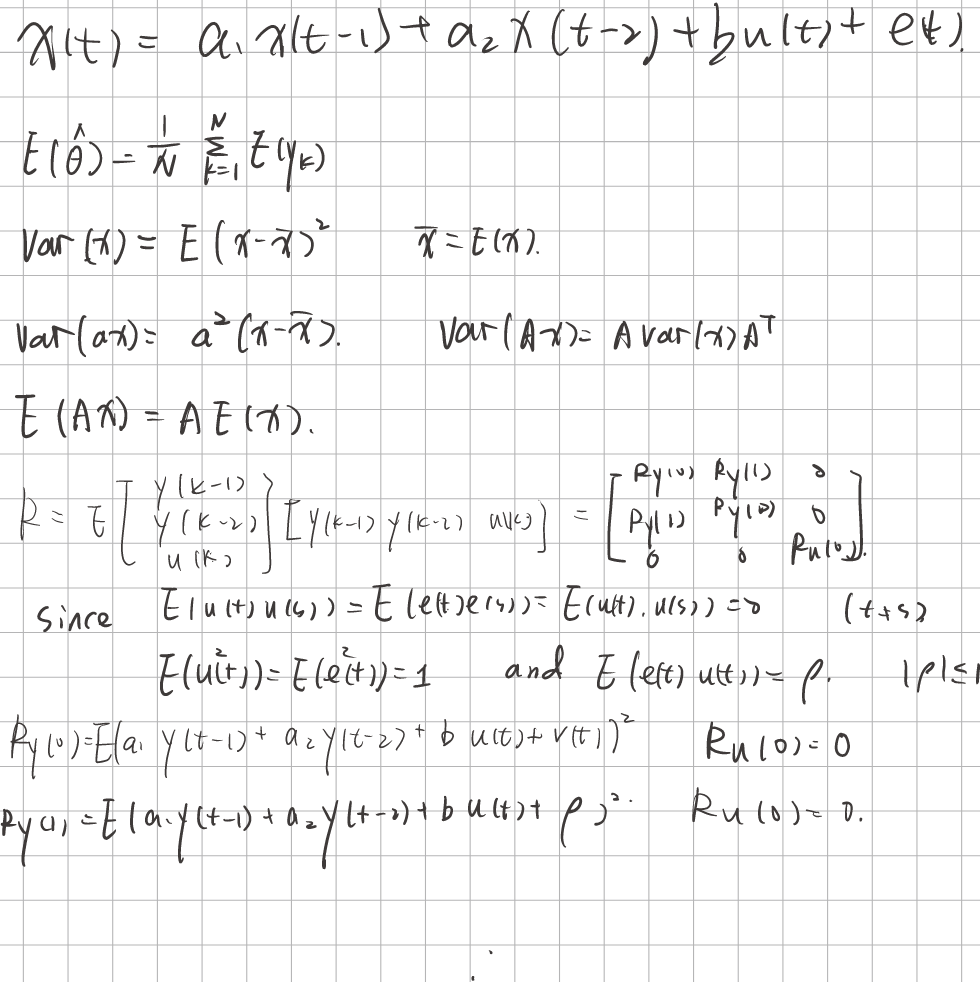 x(t) = a₁ x(t-1) + a₂ x(t-2) + b u(t) + e(t).
E(θ̂) = 1/N Σ_{k=1}^{N} E(y_k)
Var(x) = E(x-x̄)² x̄ = E(x).
Var(ax) = a²(x-x̄). Var(Ax) = A Var(x) Aᵀ
E(Ax) = A E(x).
R = E [y(k-1) y(k-2) u(k)] [y(k-1) y(k-2) u(k)] = [Ry(0) Ry(1) 0; Ry(1) Ry(0) 0; 0 0 Ru(0)].
since E(u(t)u(s)) = E(e(t)e(s)) = E(u(t).u(s)) = 0 (t≠s)
E(u²(t)) = E(e²(t)) = 1 and E(e(t)u(t)) = ρ. |ρ|≤1
Ry(0) = E(a₁ y(t-1) + a₂ y(t-2) + b u(t) + v(t))² Ru(0) = 0
Ry(1) = E(a₁ y(t-1) + a₂ y(t-2) + b u(t) + ρ)². Ru(0) = 0.